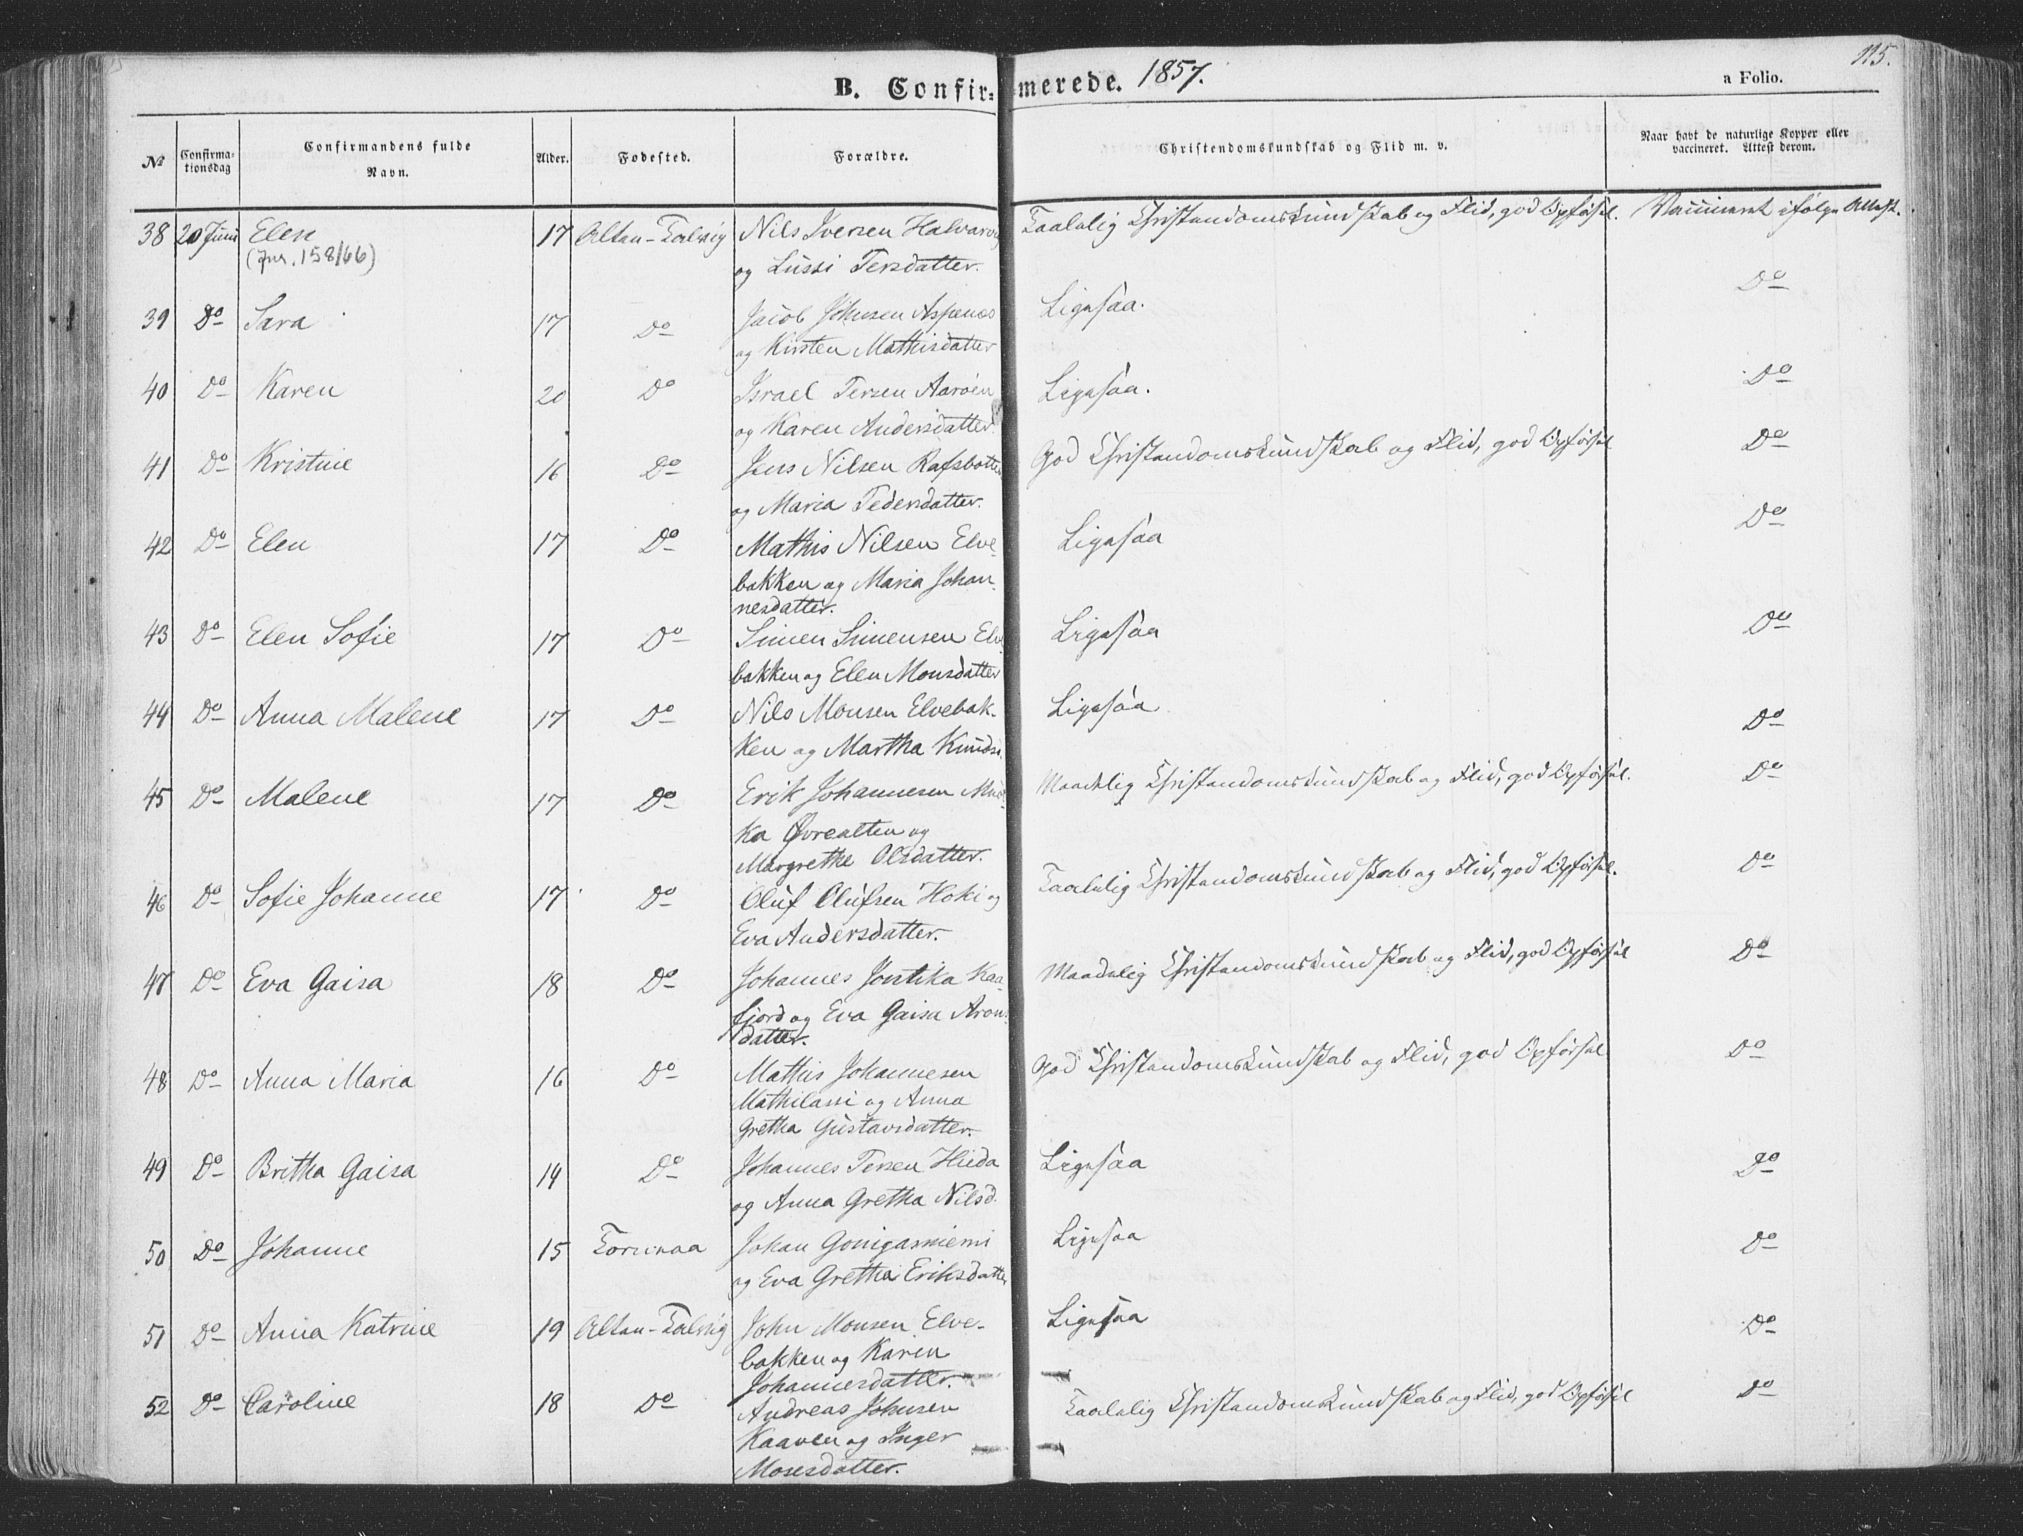 115.
B. Confir=merede. 1857.
a Folio.
No
Confirma-
tionsdag
Confirmandens fulde
Navn.
Alder.
Fødested.
Forældre.
Christendomskundskab og Flid m. v.
Naar havt de naturlige Kopper eller
vaccineret. Attest derom.
38 20 Juni Elen 17 Alten-Talvig Nils Iversen Halvarvig Taalelig Christendomskundskab og Flid, god Opførsel. Vaccineret ifølge Attest.
(Jnr. 158/66)
og Lussi Tersdatter.
Do
39 Do Sara 17 Do Jacob Johnsen Aspenæs Ligesaa.
og Kirsten Mathisdatter
40 Do Karen 20 Do Israel Tersen Aarøen Ligesaa. Do
og Karen Andersdatter.
41 Do Kristine 16 Do Jens Nilsen Rafsbotten God Christendomskundskab og Flid, god Opførsel Do
og Maria Pedersdatter.
42 Do Elen 17 Do Mathis Nilsen Elve- Ligesaa Do
bakken og Maria Johan-
nesdatter.
43 Do Elen Sofie 17 Do Simen Simensen Elve Ligesaa Do
bakken og Elen Monsdatter
44 Do Anna Malene 17 Do Nils Monsen Elvebak- Ligesaa Do
ken og Martha Knudsd.
45 Do Malene 17 Do Erik Johannesen Maadelig Christendomskundskab og Flid, god Opførsel. Do
ka Øvrealten og
Margrethe Olsdatter.
46 Do Sofie Johanne 17 Do Oluf Olufsen Hoki og Taalelig Christendomskundskab og Flid, god Opførsel. Do
Eva Andersdatter.
47 Do Eva Gaisa 18 Do Johannes Jontika Kaa- Maadelig Christendomskundskab og Flid, god Opførsel Do
fjord og Eva Gaisa Arons-
datter.
48 Do Anna Maria 16 Do Mathis Johannesen God Christendomskundskab og Flid, god Opførsel Do
Mathilassi og Anna
Gretha Gustavsdatter.
49 Do Britha Gaisa 14 Do Johannes Tersen Hieda Ligesaa Do
og Anna Gretha Nilsd.
50 Do Johanne 15 Torneaa Johan Ligesaa Do
og Eva Gretha Eriksdatter
51 Do Anna Katrine 19 Alten-Talvig John Monsen Elve- Ligesaa Do
bakken og Karen
Johannesdatter.
52 Do Caroline 18 Do Andreas Johnsen Taalelig Christendomskundskab og Flid, god Opførsel Do
Kaaven og Inger
Mosesdatter.